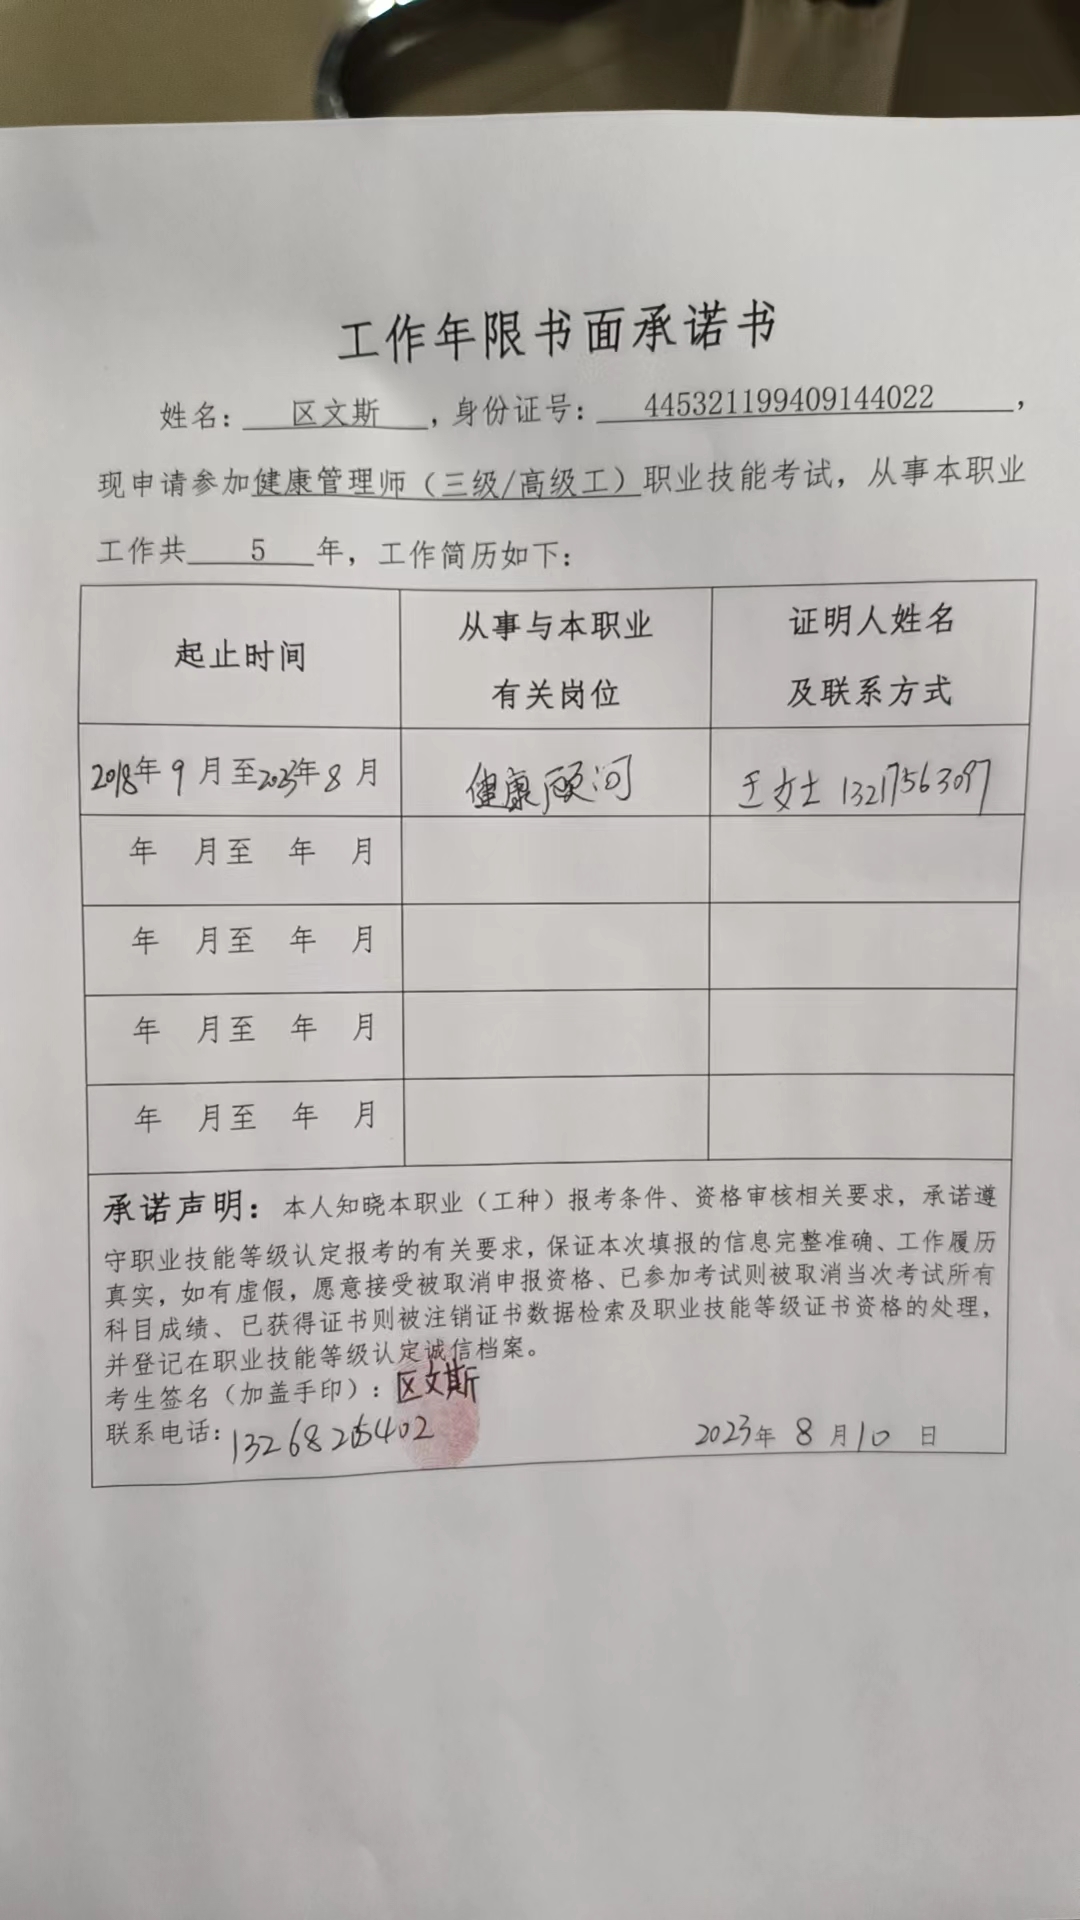 工作年限书面承诺书
姓名：区文斯，身份证号：445321199409144022，
现申请参加健康管理师（三级/高级工）职业技能考试，从事本职业
工作共 5 年，工作简历如下：
起止时间
从事与本职业
有关岗位
证明人姓名
及联系方式
2018年9月至2023年8月
健康顾问
王女士 13217563097
年 月至 年 月
年 月至 年 月
年 月至 年 月
年 月至 年 月
承诺声明：本人知晓本职业（工种）报考条件、资格审核相关要求，承诺遵
守职业技能等级认定报考的有关要求，保证本次填报的信息完整准确、工作履历
真实，如有虚假，愿意接受被取消申报资格、已参加考试则被取消当次考试所有
科目成绩、已获得证书则被注销证书数据检索及职业技能等级证书资格的处理，
并登记在职业技能等级认定诚信档案。
考生签名（加盖手印）：区文斯
联系电话：
2023年8月10日